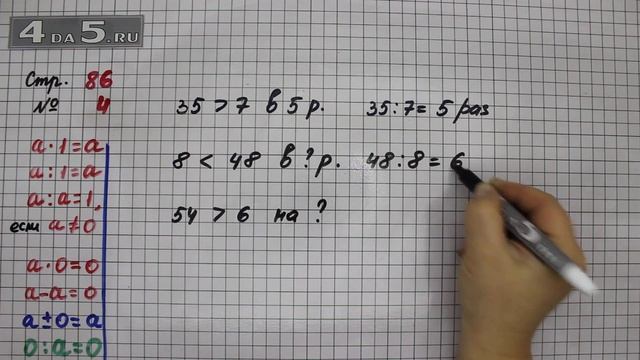 4DA5.RU
Стр. 86
№ 4
a·1=a
a:1=a
a:a=1,
если a≠0
a·0=0
a-a=0
a±0=a
0:a=0
35 > 7 в 5 р. 35:7= 5 раз
8 < 48 в ? р. 48:8= 6
54 > 6 на ?